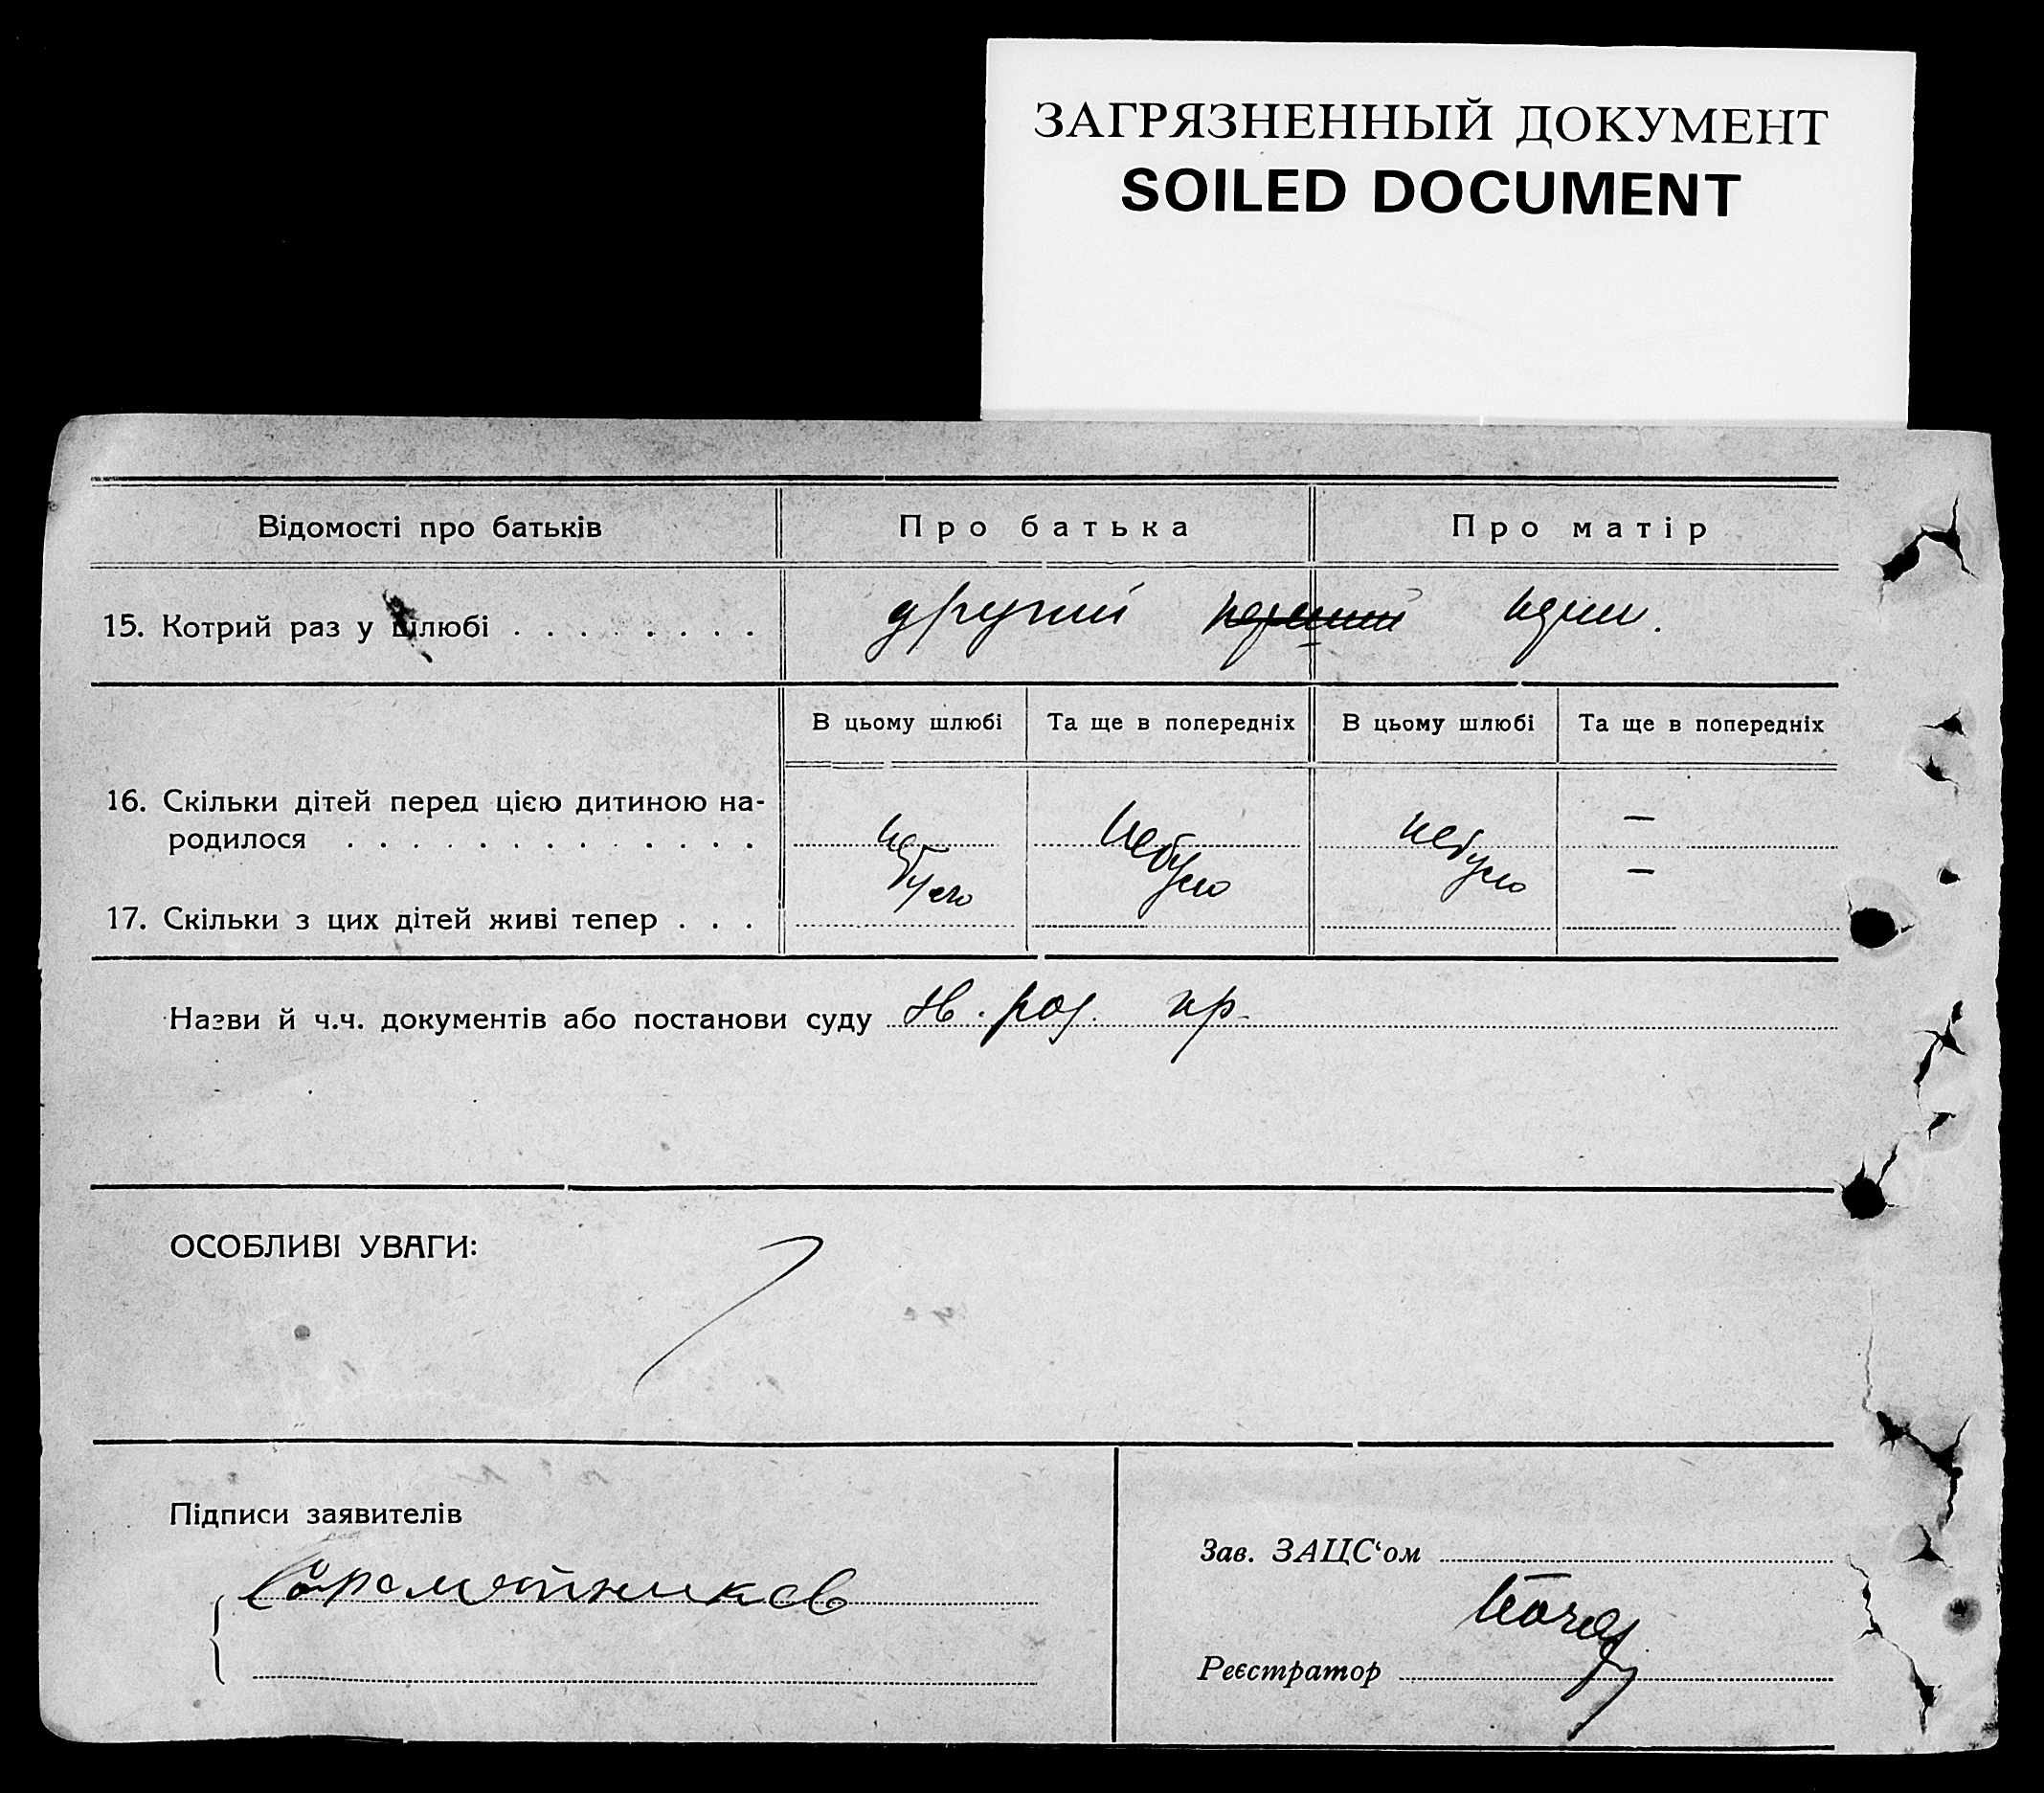 ЗАГРЯЗНЕННЫЙ ДОКУМЕНТ
SOILED DOCUMENT
Відомості про батьків Про батька Про матір
15. Котрий раз у шлюбі другий
В цьому шлюбі Та ще в попередніх В цьому шлюбі Та ще в попередніх
16. Скільки дітей перед цією дитиною на-
родилося не було не було не було —
17. Скільки з цих дітей живі тепер —
Назви й ч.ч. документів або постанови суду
ОСОБЛИВІ УВАГИ:
Підписи заявителів
Зав. ЗАЦС‘ом
Реєстратор